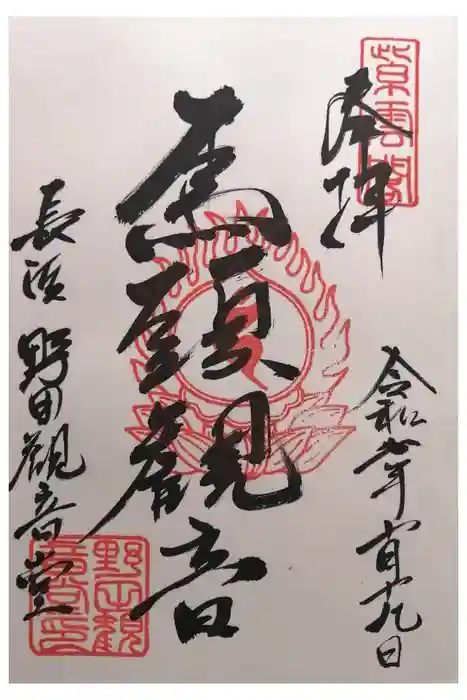 奉拝
紫雲閣
令和 年 月 十九日
馬頭観音
長浜 野田観音堂
野田観
音堂印